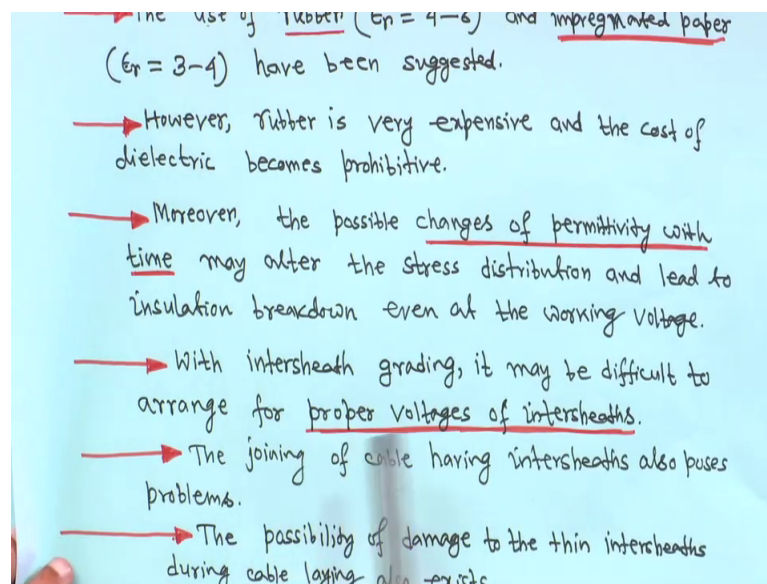 The use of rubber (εr = 4-6) and impregnated paper
(εr = 3-4) have been suggested.
However, rubber is very expensive and the cost of
dielectric becomes prohibitive.
Moreover, the possible changes of permittivity with
time may alter the stress distribution and lead to
insulation breakdown even at the working voltage.
With intersheath grading, it may be difficult to
arrange for proper voltages of intersheaths.
The joining of cable having intersheaths also puses
problems.
The possibility of damage to the thin intersheaths
during cable laying also exists